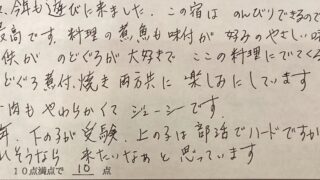 、今年も遊びに来ました。この宿は のんびりできるので
最高です。料理の煮魚も味付が好みのやさしい味
供が のどぐろが大好きで ここの料理にでてくる
どぐろ煮付、焼き 両方共に 楽しみにしています
肉もやわらかくて ジューシーです。
年、下の子が受験、上の子は部活でハードですが
いそうなら 来たいなぁと思っています
10点満点で 10 点